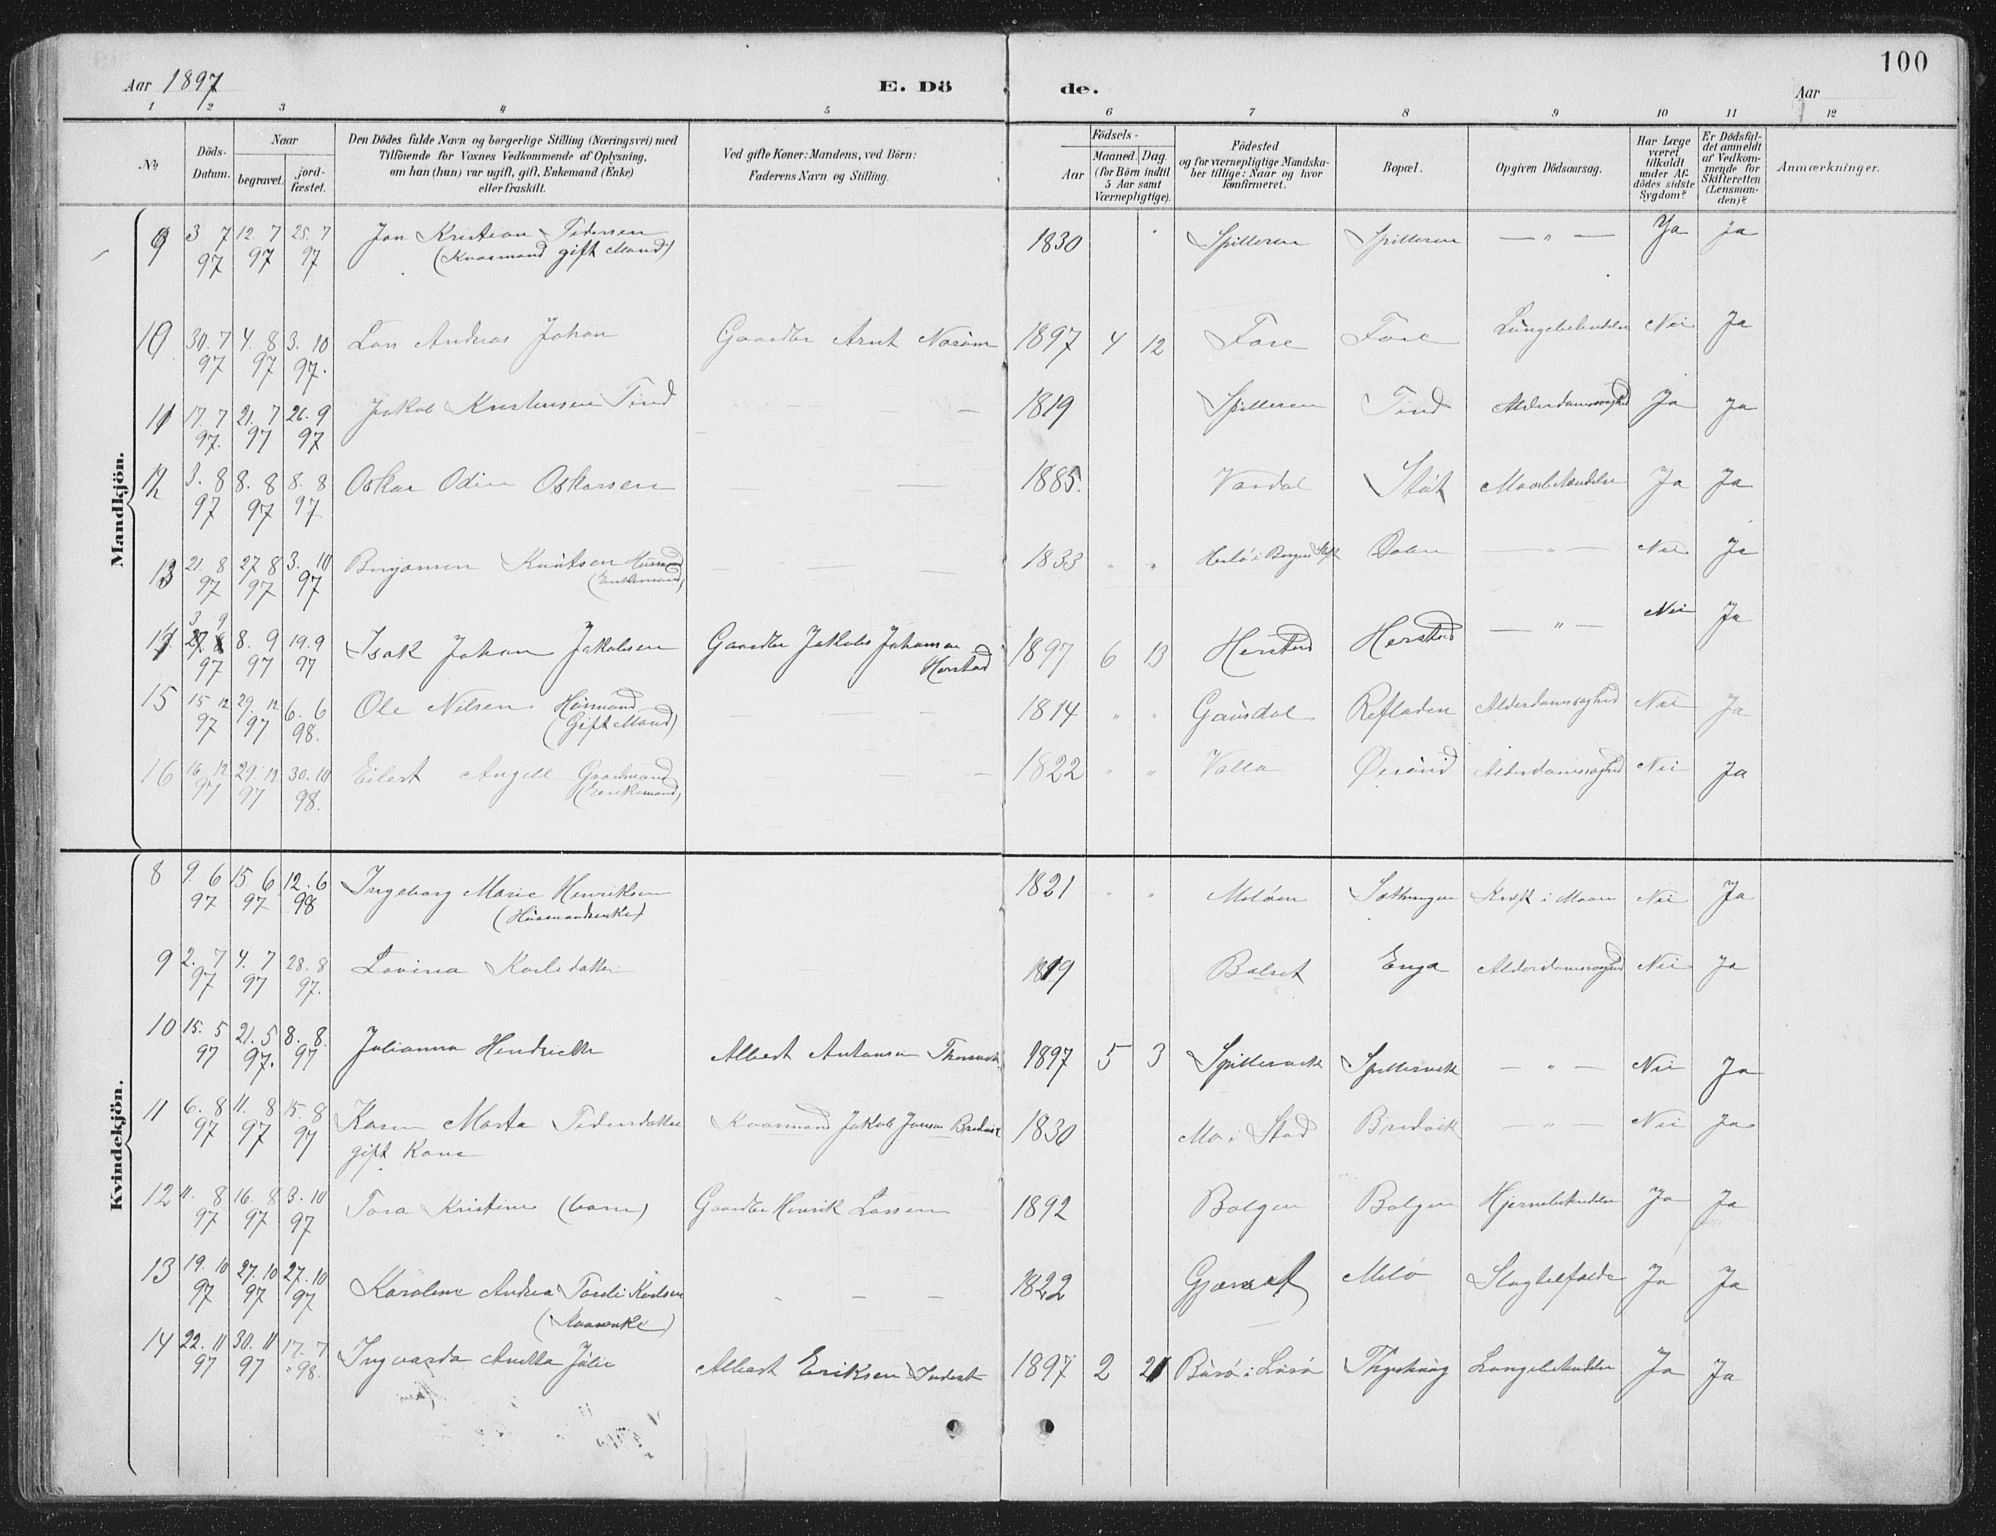 100
Aar 1897 E. Dö de. Aar
1 2 3 4 5 6 7 8 9 10 11 12
No
Döds-Datum.
Naar
begravet.
jord-fæstet.
Den Dödes fulde Navn og borgerlige Stilling (Næringsvei) med
Tilföiende for Voxnes Vedkommende af Oplysning,
om han (hun) var ugift, gift, Enkemand (Enke)
eller fraskilt.
Ved gifte Koner: Mandens, ved Börn:
Faderens Navn og Stilling.
Födsels-
Aar
Maaned. Dag.
(for Börn indtil
5 Aar samt
Værnepligtige).
Födested
og for værnepligtige Mandska-
ber tillige: Naar og hvor
konfirmeret.
Bopæl.
Opgiven Dödsaarsag.
Har Læge
været
tilkaldt
under Af-
dödes sidste
Sygdom?
Er Dödsfal-
det anmeldt
af Vedkom-
mende for
Skifteretten
(Lensman-
den)?
Anmærkninger.
Mandkjön.
9 3 7 97 12 7 97 25 7 97 Jon Kristian Pedersen (Kvarmand gift Mand) 1830 Spilleren Spilleren — " — Ja Ja
10 30. 7 97 4. 8 97 3. 10 97. Lars Andreas Johan Gaardbr Arnt 1897 4 12 Fore Fore Lungebetændelse Nei Ja
11 17. 7 97. 21. 7 97 26. 9 97 Jakob Kristensen Tind — — 1819 Spilleren Tind Alderdomssvaghed Ja Ja
12 3. 8 97 8. 8 97 8. 8 97 Oskar Odin Oskarsen — — 1885. Støt Mavebetændelse Ja Ja
13 21. 8 97 27 8 97 3. 10 97 Benjamin Knutsen Husmand (Enkemand) — — 1833 " " Herlø i Bergens Stift Dalen — " — Nei Ja
14 3 9 97 8. 9 97 19. 9 97 Isak Johan Jakobsen Gaardbr Jakob Johansen Herstad 1897 6 13 Herstad Herstad — " — Nei Ja
15 15 12 97 29. 12 97 6. 6 98. Ole Nilsen Husmand (Gift Mand) — — 1814 " " Gausdal Alderdomssvaghed Nei Ja
16 16 12 97 29. 12 97 30. 10 98. Eilert Angell Gaardmand (Enkemand) — 1822 " " Valla Ørsund Alderdomssvaghed Nei Ja
Kvindekjön.
8 9. 6 97 15 6 97 12. 6 98 Ingeborg Marie Henriksen (Husmandsenke) 1821 " " Meløen Sætningen Kræft i Maven Nei Ja
9 2. 7 97 4. 7 97 28. 8 97. Lovina Karlsdatter 1819 Bolset Enga Alderdomssvaghed Nei Ja
10 15. 5 97 21. 5 97. 8. 8. 97 Julianna Hendriette Albert Antonsen 1897 5 3 Spillervik Spillervik — " — Nei Ja
11 6. 8 97 11. 8 97 15. 8 97 Karen Marta Pedersdatter
gift Kone Kvarmand Jakob Jonsen Bredvik 1830 Mo i Stad Bredvik — " — Nei Ja
12 11. 8 97 16. 8 97 3. 10 97 Tora Kristine (barn) Gaardbr Henrik Larsen 1892 Bolgen Bolgen Hjernebetændelse Ja Ja
13 19. 10 97 27. 10 97 27. 10 97 Karoline Andrea Karlsen — — 1822 Gjæraat Melø Slagtilfælde Ja Ja
14 22. 11 97 30. 11 97 17. 7 98. Ingvarda Anetta Julie Albert Eriksen 1897 2 21 Lungebetændelse Ja Ja